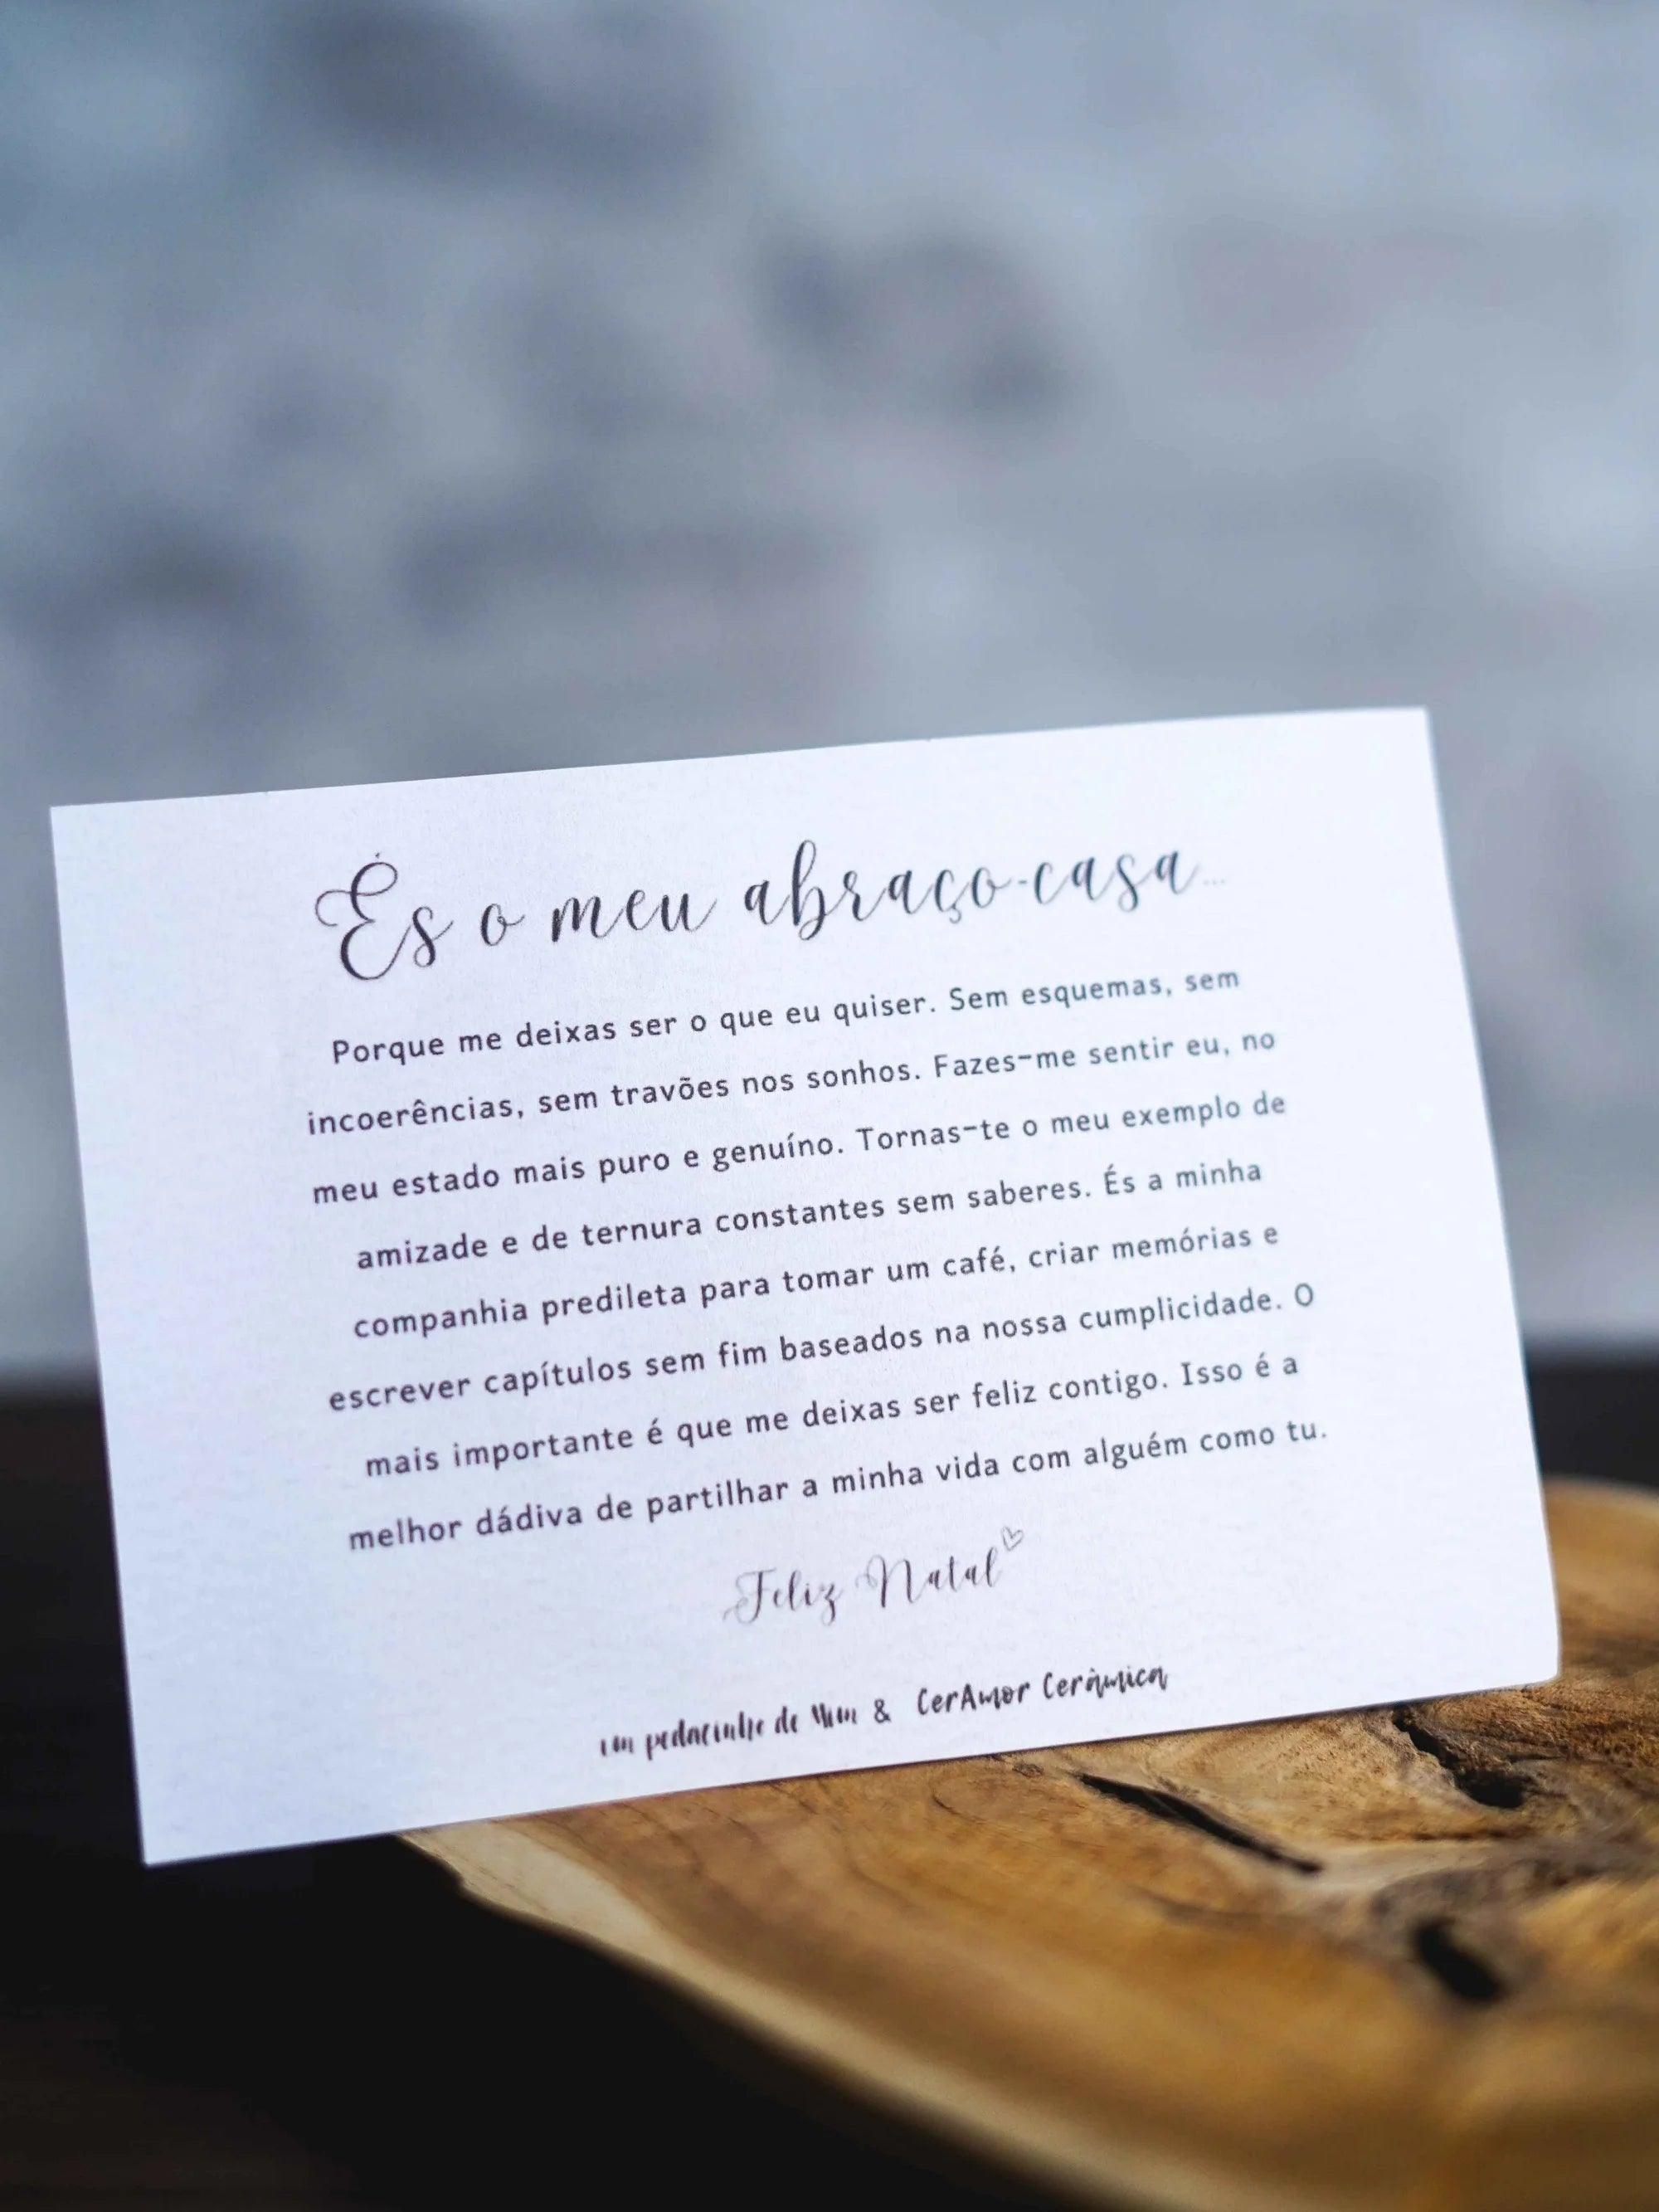 És o meu abraço-casa...
Porque me deixas ser o que eu quiser. Sem esquemas, sem
incoerências, sem travões nos sonhos. Fazes-me sentir eu, no
meu estado mais puro e genuíno. Tornas-te o meu exemplo de
amizade e de ternura constantes sem saberes. És a minha
companhia predileta para tomar um café, criar memórias e
escrever capítulos sem fim baseados na nossa cumplicidade. O
mais importante é que me deixas ser feliz contigo. Isso é a
melhor dádiva de partilhar a minha vida com alguém como tu.
Feliz Natal
um pedacinho de Mim & CerAmor Cerâmica